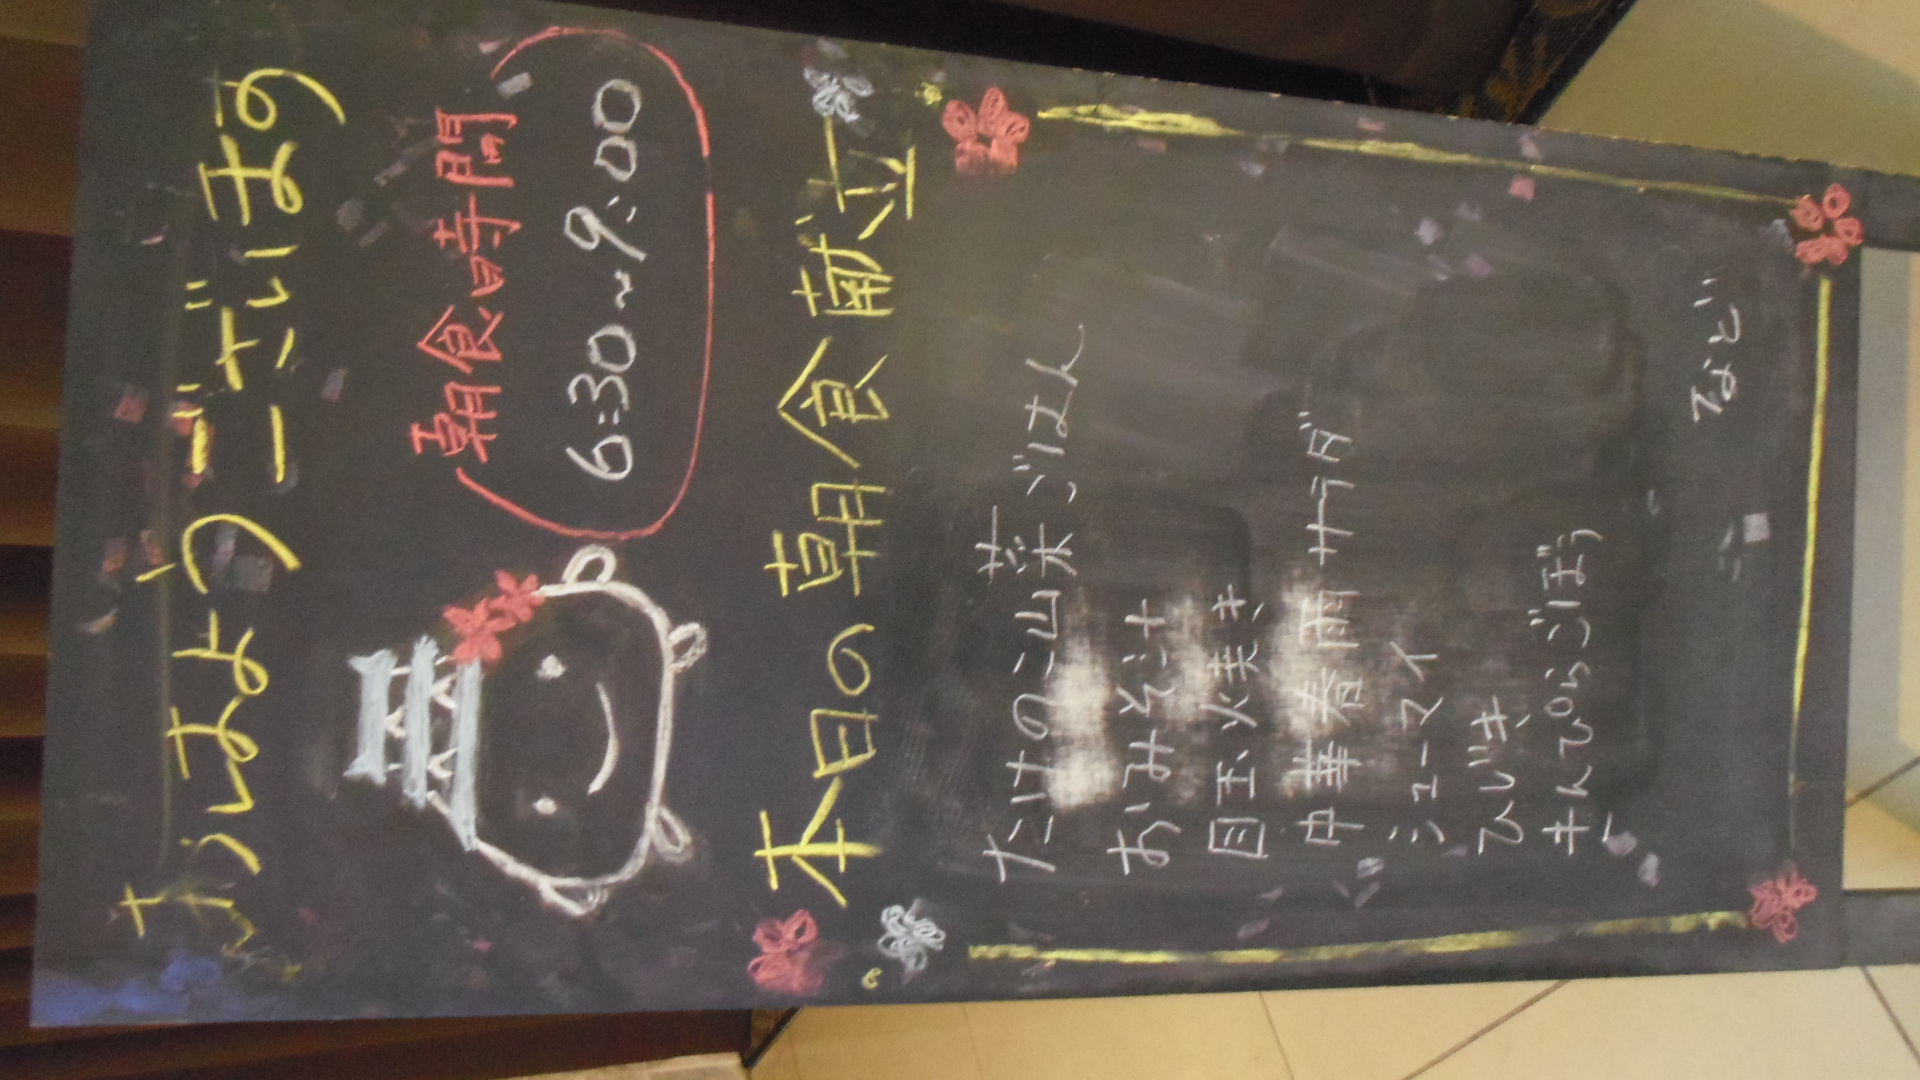 おはようございます
朝食時間
6:30~9:00
本日の朝食献立
たけのこ山菜ごはん
おみそ汁
目玉焼き
中華春雨サラダ
シューマイ
ひじき
きんぴらごぼう
など